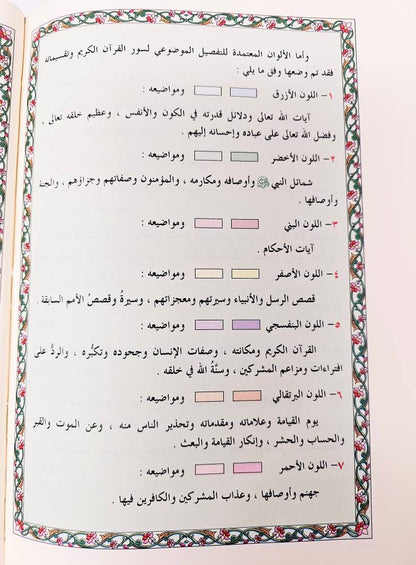 وأما الألوان المعتمدة للتفصيل الموضوعي لسور القرآن الكريم وتقسيماته
فقد تم وضعها وفق ما يلي :
١ - اللون الأزرق ومواضيعه :
آيات الله تعالى ودلائل قدرته في الكون والأنفس ، وعظيم خلقه تعالى ،
وفضل الله تعالى على عباده وإحسانه إليهم .
٢ - اللون الأخضر ومواضيعه :
شمائل النبي ﷺ وأوصافه ومكارمه ، والمؤمنون وصفاتهم وجزاؤهم ، والجنة
وأوصافها .
٣ - اللون البني ومواضيعه :
آيات الأحكام .
٤ - اللون الأصفر ومواضيعه :
قصص الرسل والأنبياء وسيرتهم ومعجزاتهم ، وسيرةُ وقصصُ الأمم السابقة .
٥ - اللون البنفسجي ومواضيعه :
القرآن الكريم ومكانته ، وصفات الإنسان وجحوده وتكبُّره ، والردُّ على
افتراءات ومزاعم المشركين ، وسنَّةُ الله في خلقه .
٦ - اللون البرتقالي ومواضيعه :
يوم القيامة وعلاماته ومقدماته وتحذير الناس منه ، وعن الموت والقبر
والحساب والحشر ، وإنكار القيامة والبعث .
٧ - اللون الأحمر ومواضيعه :
جهنم وأوصافها ، وعذاب المشركين والكافرين فيها .